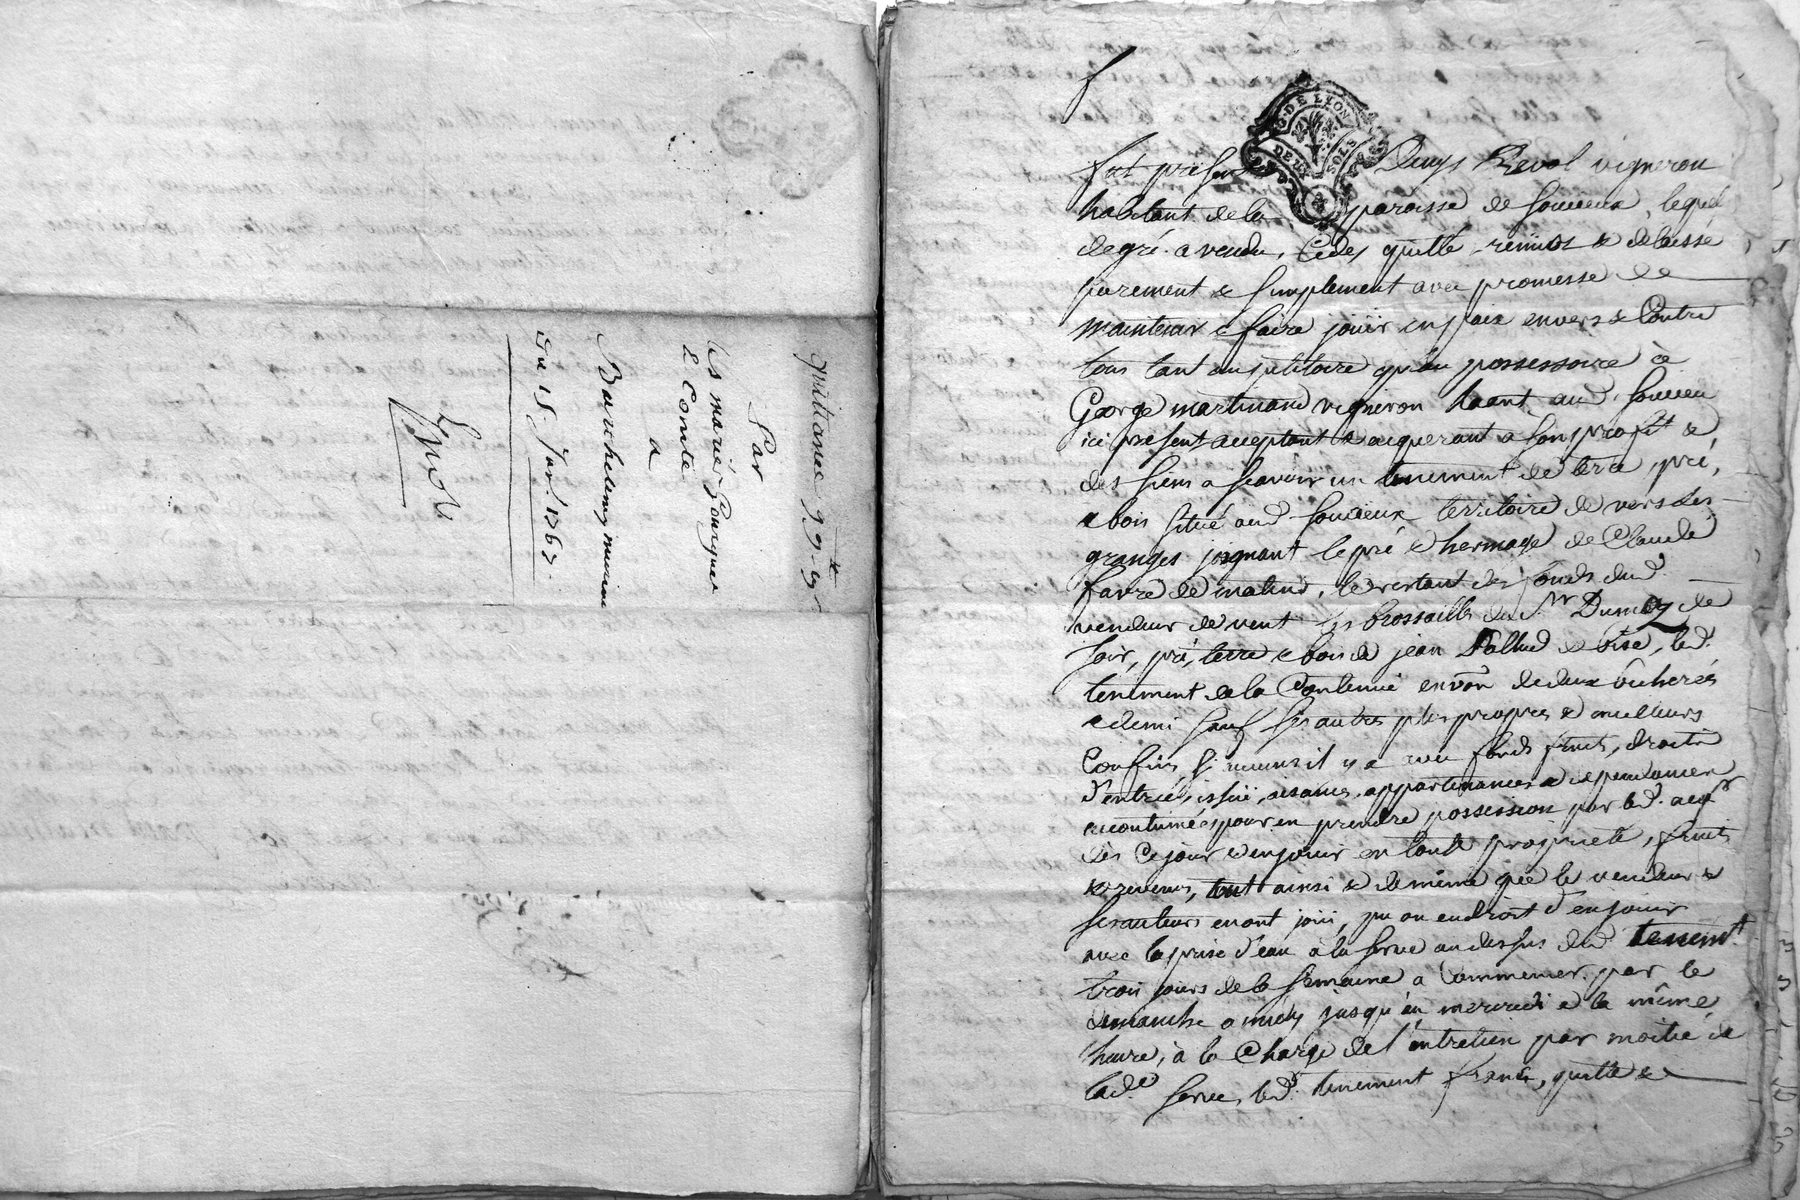 quittance 99# 5s
Par
Les mariés Bourguet
& Comte
a
Barthelemy
Du 15 Janv. 1767
G. DE LYON
DEUX SOLS
fut présent Denys Revol vigneron
habitant de la paroisse de Soucieux, lequel
de gré a vendu, cédé, quitté, remis & délaissé
purement & simplement avec promesse de
maintenir & faire jouir en paix envers & Contre
tous tant au petitoire qu'au possessoire à
George martinand vigneron habnt aud. Soucieu
ici présent acceptant & acquerant a son profit &
des siens a sçavoir un tenement de terre, pré,
& bois situé aud Soucieux territoire de vers les
granges joignant le pré & hermage de Claude
favre de matind, le restant des fonds dud.
vendeur de vent les brossailles du Sr Dumas de
soir, pré, terre & bois de jean de bise, led.
tenement de la Contenue environ de deux bicherées
& demi sauf ses autres plus propres & meilleurs
Confins si aucuns il y a avec fonds fruits, droits
d'entrée, issue, aisances, appartenances & dependances
accoutumées pour en prendre possession par led. acqr
dès Ce jour & en jouir en toute proprieté, fruits
& revenus, tout ainsi & de même que le vendeur &
ses auteurs en ont joui, pu ou eu droit d'en jouir
avec la prise d'eau à la serve au dessus dud tenemt
trois jours de la semaine a Commencer par le
dimanche a midy jusqu'au mercredi a la même
heure, à la Charge de l'entretien par moitié de
lade serve, led. tenement franc, quitte &